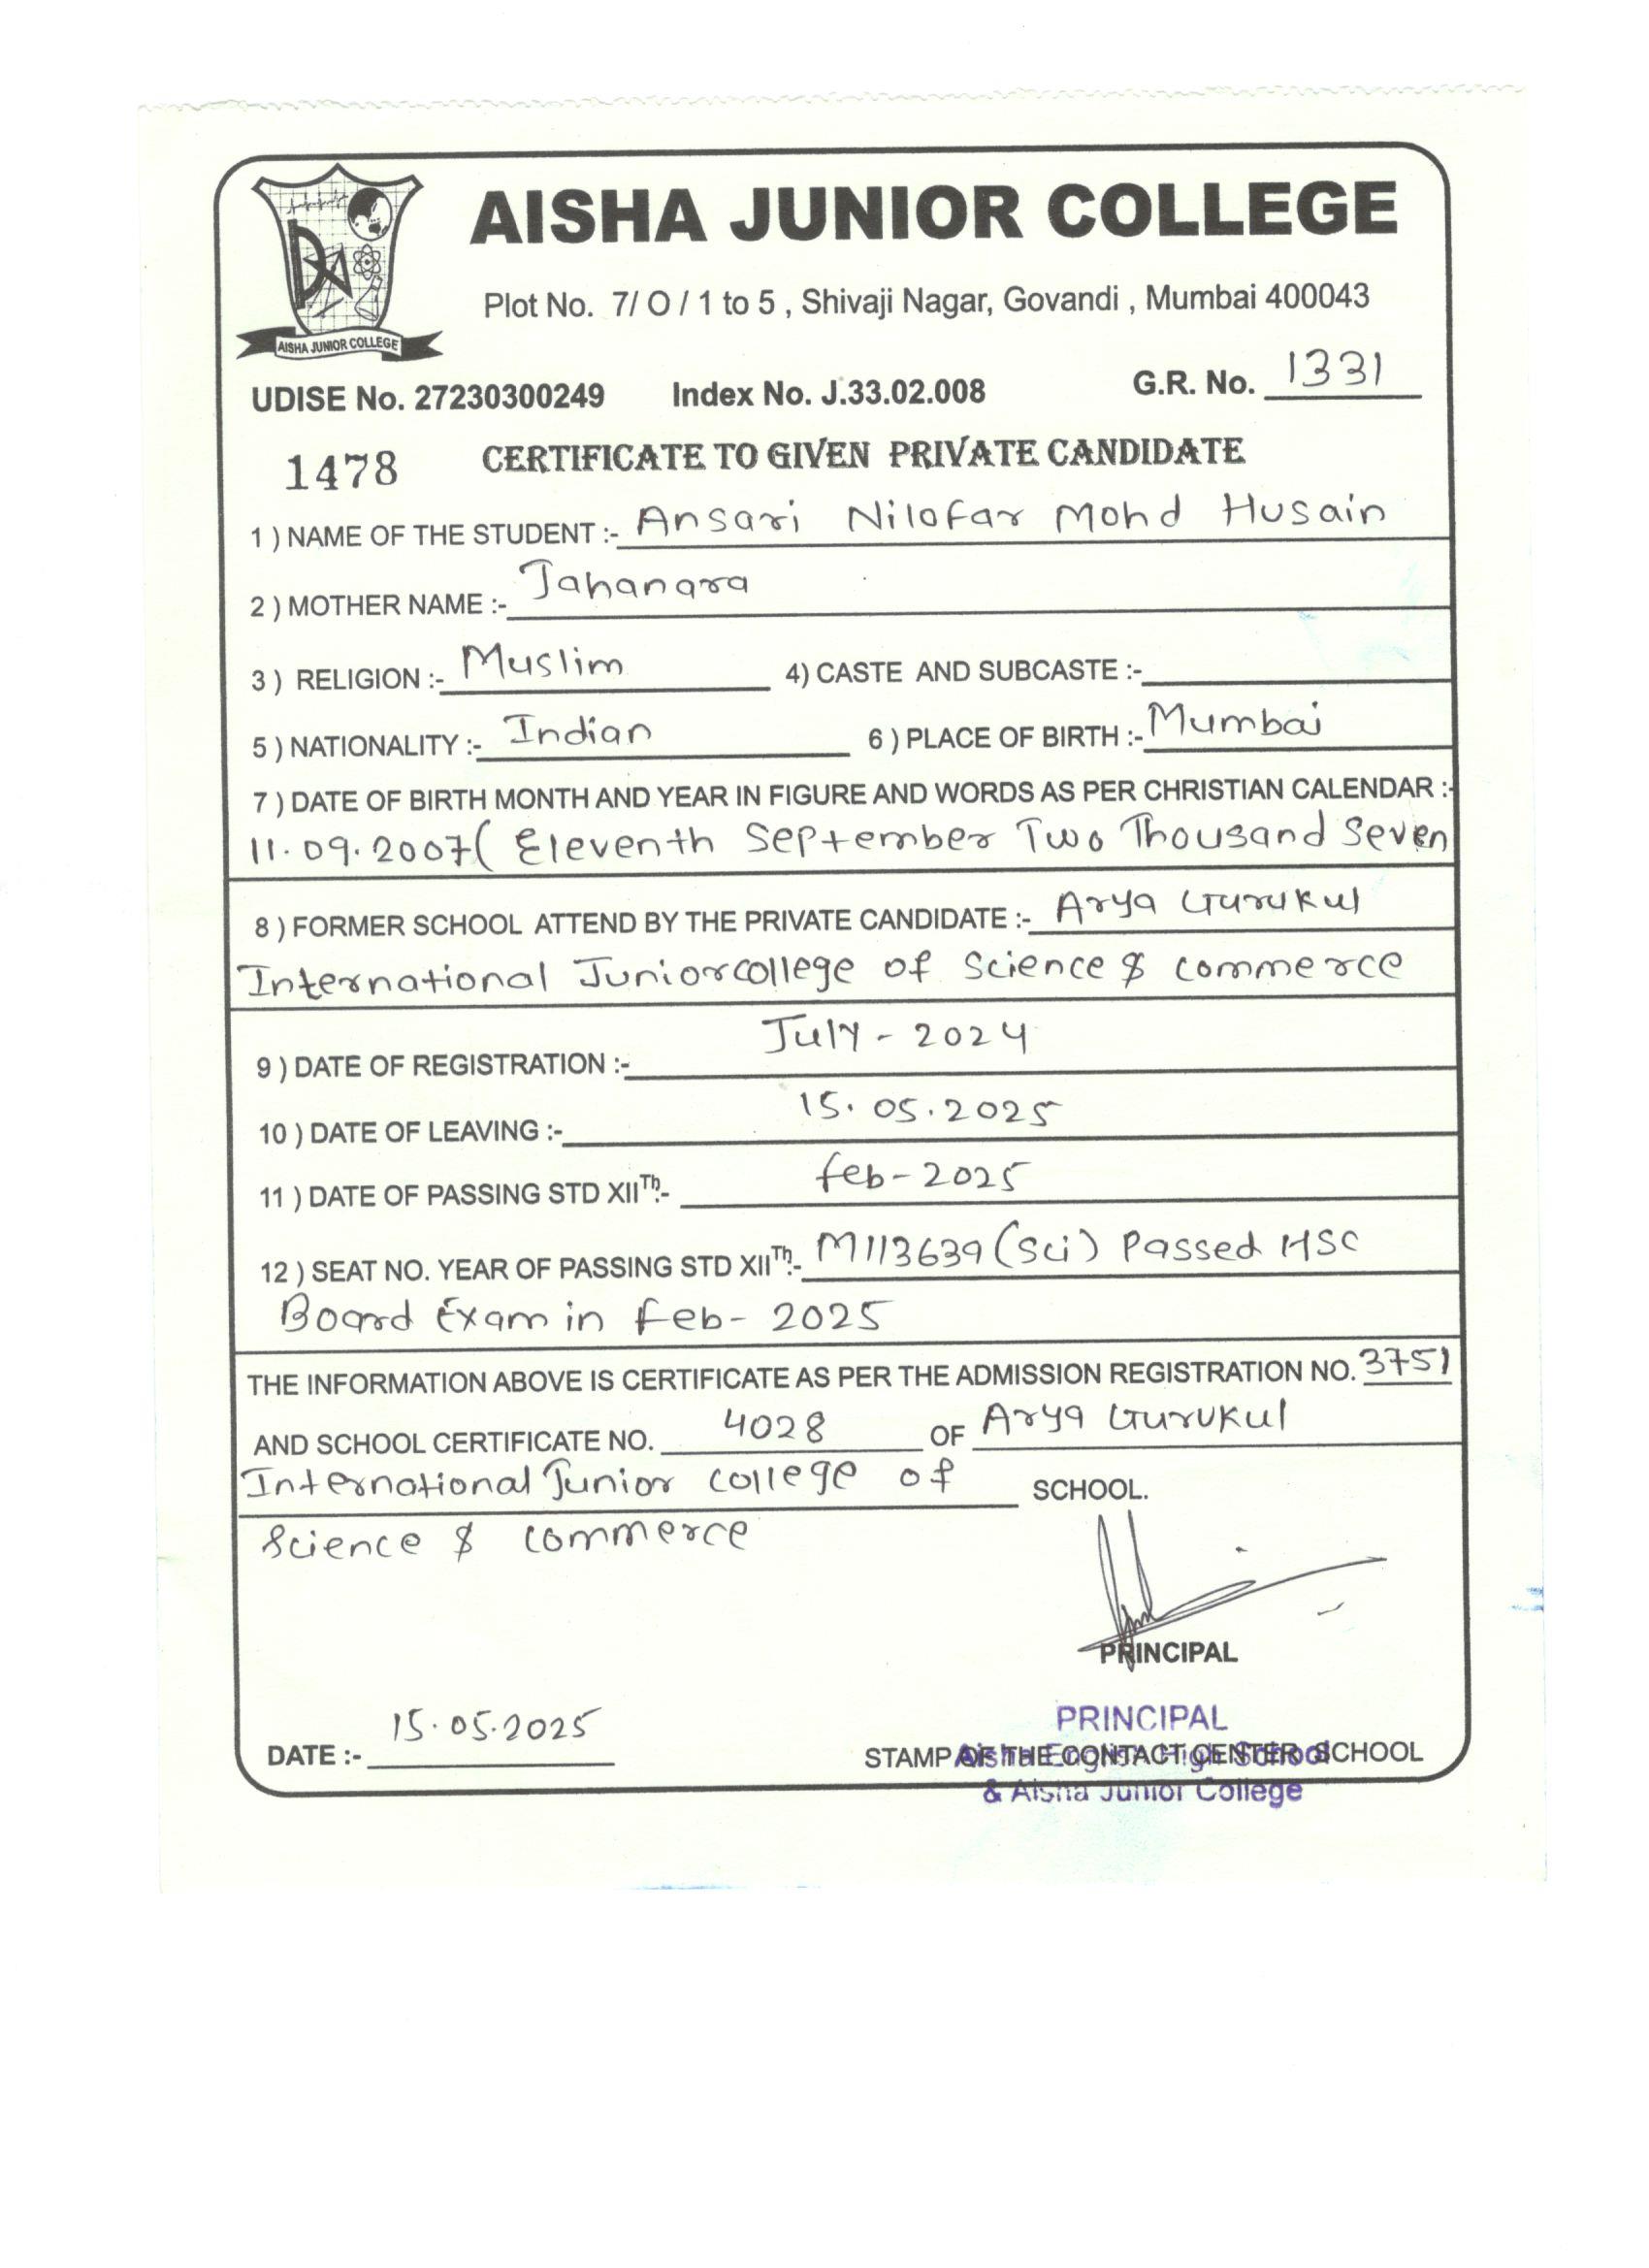 AISHA JUNIOR COLLEGE
Plot No. 7/ O / 1 to 5 , Shivaji Nagar, Govandi , Mumbai 400043
AISHA JUNIOR COLLEGE
UDISE No. 27230300249 Index No. J.33.02.008 G.R. No. 1331
1478 CERTIFICATE TO GIVEN PRIVATE CANDIDATE
1 ) NAME OF THE STUDENT :- Ansari Nilofar Mohd Husain
2 ) MOTHER NAME :- Jahanara
3 ) RELIGION :- Muslim 4) CASTE AND SUBCASTE :-
5 ) NATIONALITY :- Indian 6 ) PLACE OF BIRTH :- Mumbai
7 ) DATE OF BIRTH MONTH AND YEAR IN FIGURE AND WORDS AS PER CHRISTIAN CALENDAR :-
11.09.2007( Eleventh September Two Thousand Seven
8 ) FORMER SCHOOL ATTEND BY THE PRIVATE CANDIDATE :- Arya Gurukul
International Junior college of Science & commerce
9 ) DATE OF REGISTRATION :- July - 2024
10 ) DATE OF LEAVING :- 15.05.2025
11 ) DATE OF PASSING STD XIITh:- feb-2025
12 ) SEAT NO. YEAR OF PASSING STD XIITh:- M113639 (Sci) Passed HSC
Board Exam in feb- 2025
THE INFORMATION ABOVE IS CERTIFICATE AS PER THE ADMISSION REGISTRATION NO. 3751
AND SCHOOL CERTIFICATE NO. 4028 OF Arya Gurukul
International Junior college of SCHOOL.
Science & commerce
PRINCIPAL
PRINCIPAL
DATE :- 15.05.2025 STAMP OF THE CONTACT CENTER SCHOOL
Aisha English High School
& Aisha Junior College